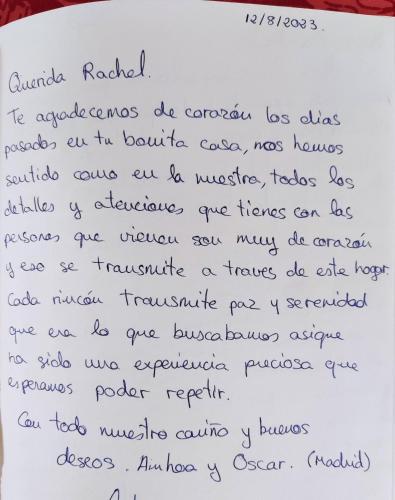 12/8/2023.
Querida Rachel.
Te agradecemos de corazón los dias
pasados en tu bonita casa, nos hemos
sentido como en la nuestra, todos los
detalles y atenciones que tienes con las
personas que vienen son muy de corazón
y eso se transmite a traves de este hogar.
Cada rincón transmite paz y serenidad
que era lo que buscabamos asique
ha sido una experiencia preciosa que
esperamos poder repetir.
Con todo nuestro cariño y buenos
deseos. Ainhoa y Oscar. (Madrid)